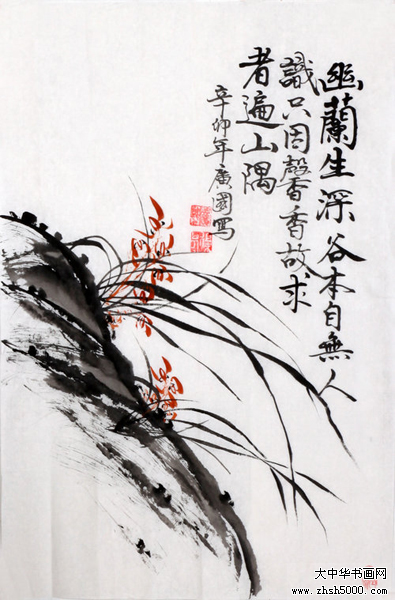 幽蘭生深谷本自無人
識只因馨香故求
者遍山隅
辛卯年廣國写
大中华书画网
www.zhsh5000.com